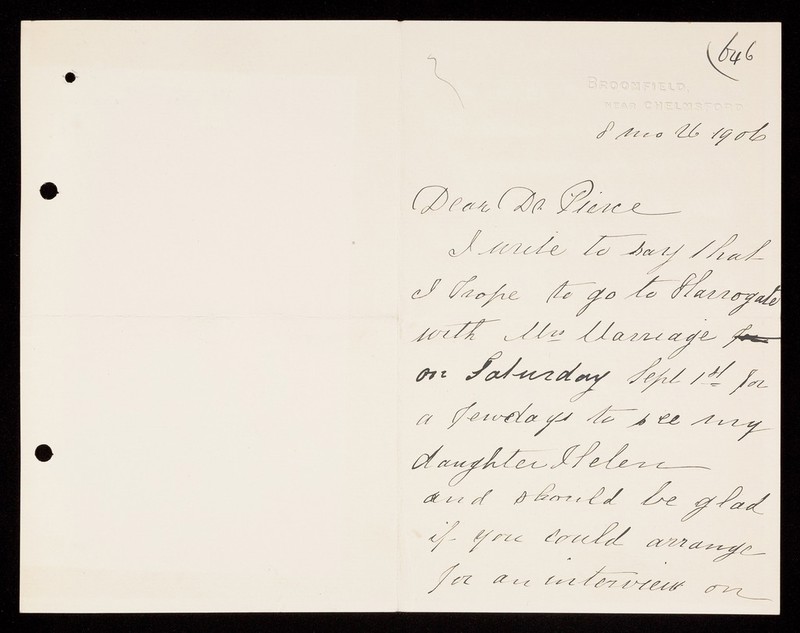 (646
BROOMFIELD,
NEAR CHELMSFORD
8 mo 26 1906
Dear Dr Pierce
I write to say that
I hope to go to Harrogate
with Mrs Marriage for
on Saturday Sept 1st for
a few days to see my
daughter Helen
and should be glad
if you could arrange
for an interview on